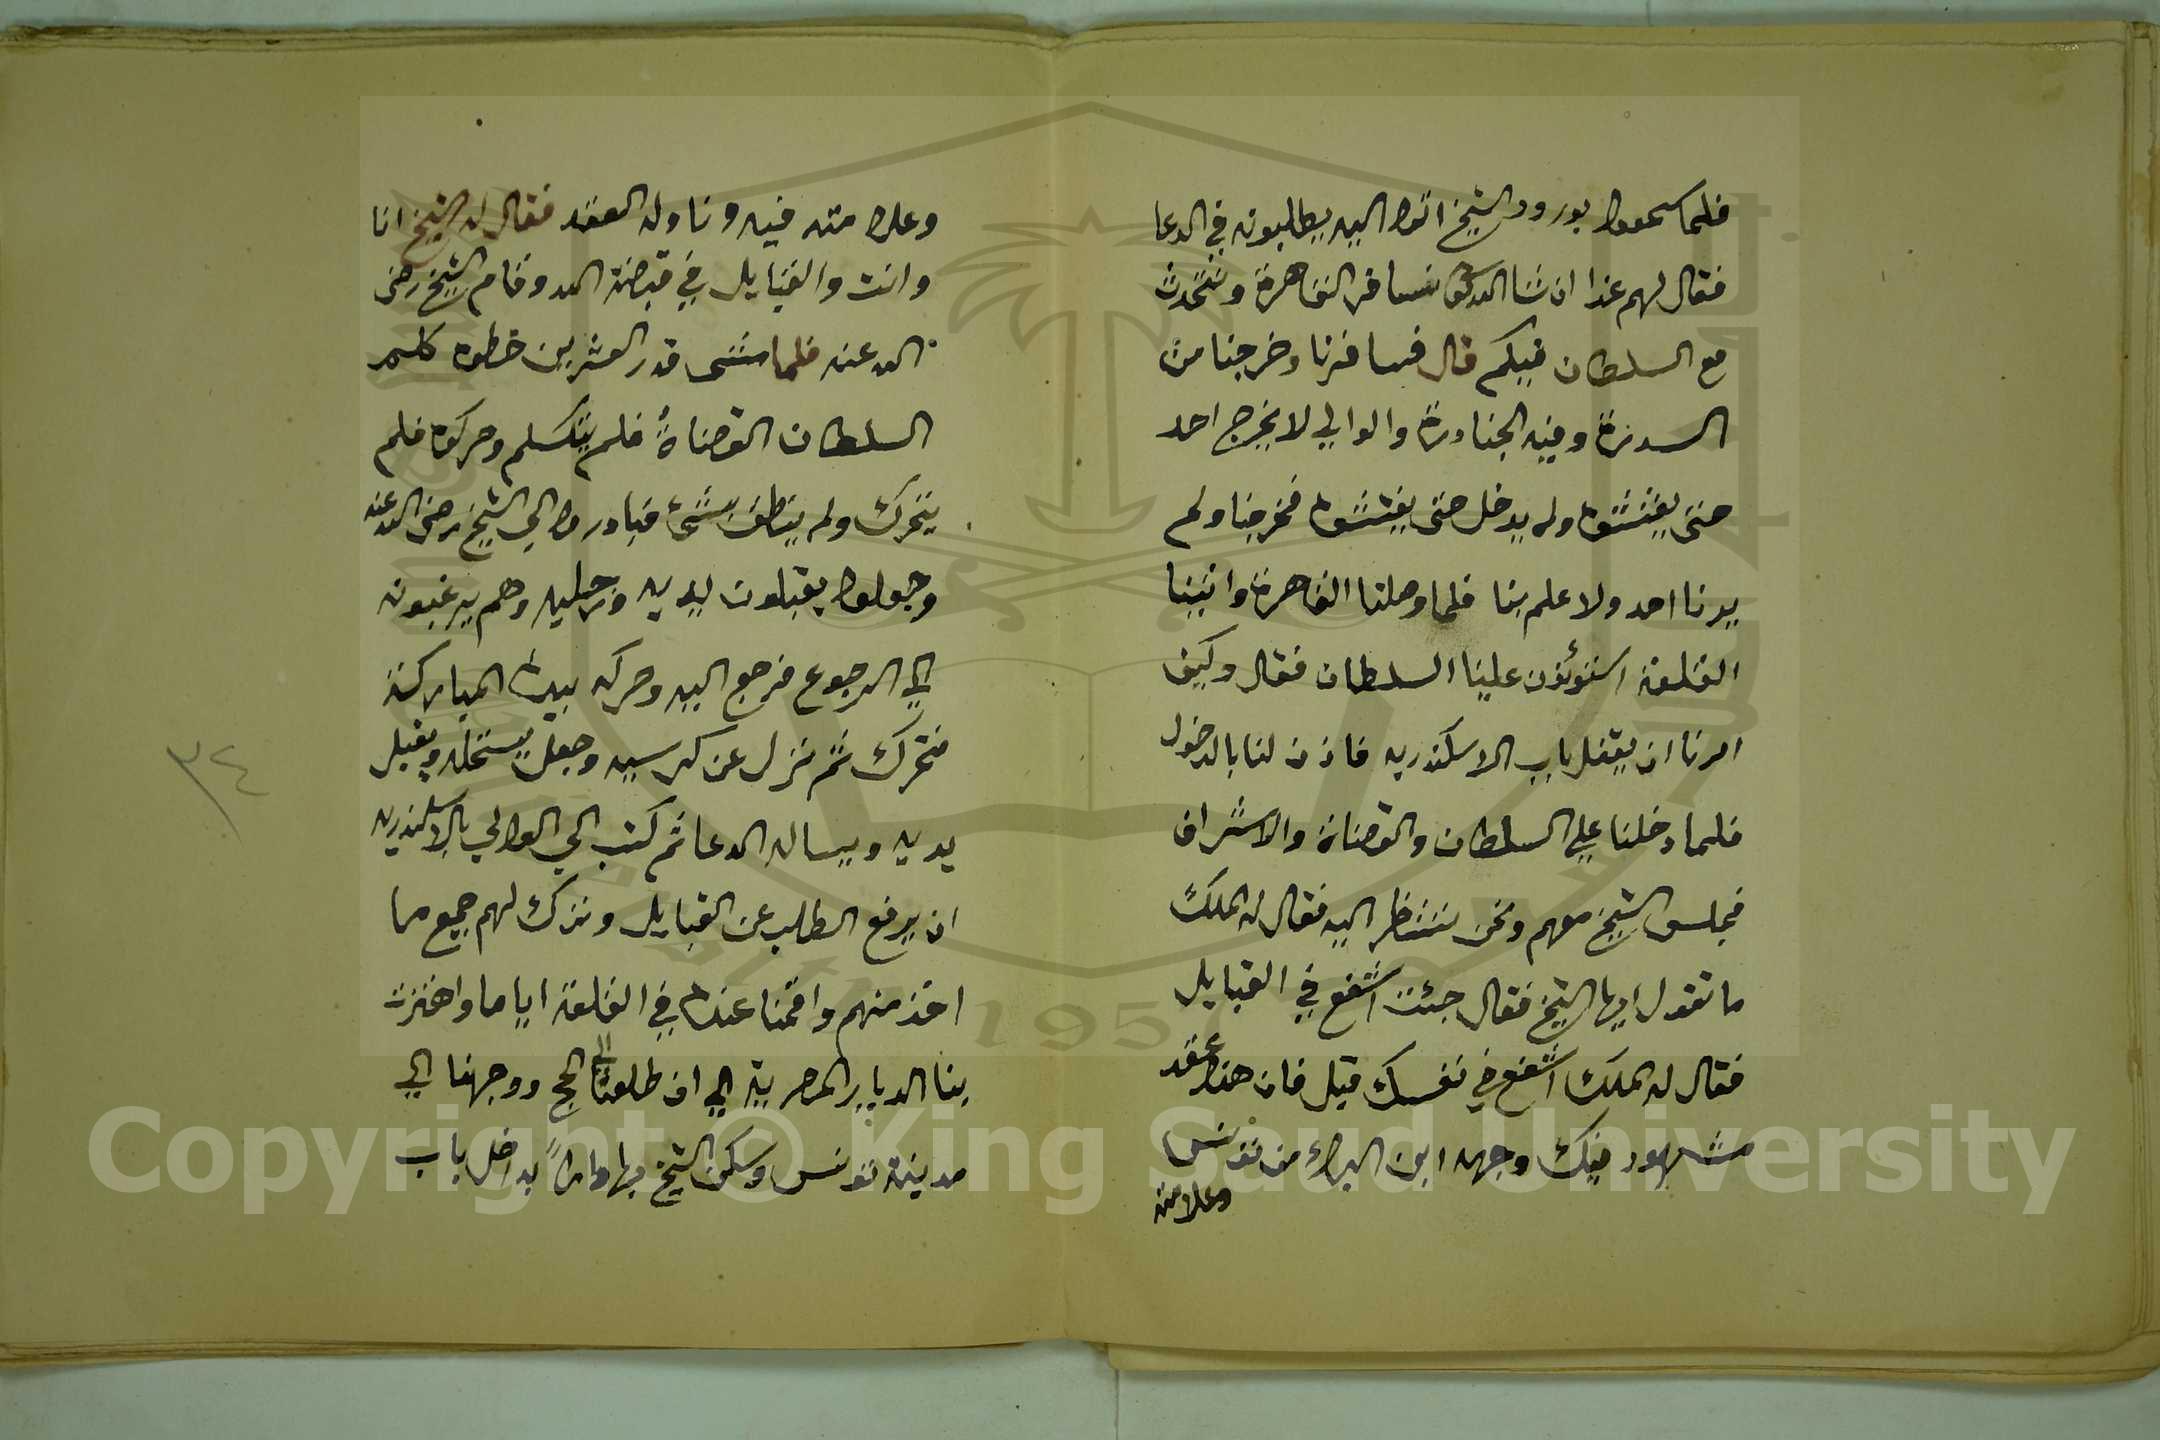 فلما سمعوا بورود الشيخ اتوا اليه يطلبونه في الدعا
فقال لهم غدا ان شا الله نسافر القاهرة ونتحدث
مع السلطان فيكم قال فسافرنا وخرجنا من
السدرة وفيه الجنادرة والوالي لا يخرج احد
حتى يفتشوه ولا يدخل حتى يفتشوه فخرجنا ولم
يرنا احد ولا علم بنا فلما وصلنا القاهرة واتينا
القلعة استؤذن علينا السلطان فقال وكيف
امرنا ان يقفل باب الاسكندريه فاذن لنا بالدخول
فلما دخلنا علي السلطان والقضاة والاشراف
فجلس الشيخ معهم ونحن ننتظر اليه فقال له الملك
ما تقول ايها الشيخ فقال جئت اشفع في القبايل
فقال له الملك اشفع في نفسك قبل فان هذا عقد
مشهود فيك وجهه ابن البراء من تونس
وعلامته
وعلامته فيه وناوله العقد فقال له الشيخ انا
وانت والقبايل في قبضة الله وقام الشيخ رضى
الله عنه فلما مشى قدر العشرين خطوه كلم
السلطان القضاة فلم يتكلم وحركوه فلم
يتحرك ولم ينطق بشئ فبادروا الي الشيخ رضى الله عنه
وجعلوا يقبلون يديه ورجليه وهم يرغبونه
الي الرجوع فرجع اليه وحركه بيده المباركة
فتحرك ثم نزل عن كرسيه وجعل يستحله ويقبل
يديه ويساله الدعا ثم كتب الي الوالي بالاسكندريه
ان يرفع الطلب عن القبايل ونترك لهم جميع ما
اخذ منهم واقمنا عنده في القلعة اياما واهتزت
بنا الديار المصرية الي ان طلعنا الى الحج ووجهنا الي
مدينة تونس وسكن الشيخ بها دارا بداخل باب
٣٤
Copyright © King Saud University
1957